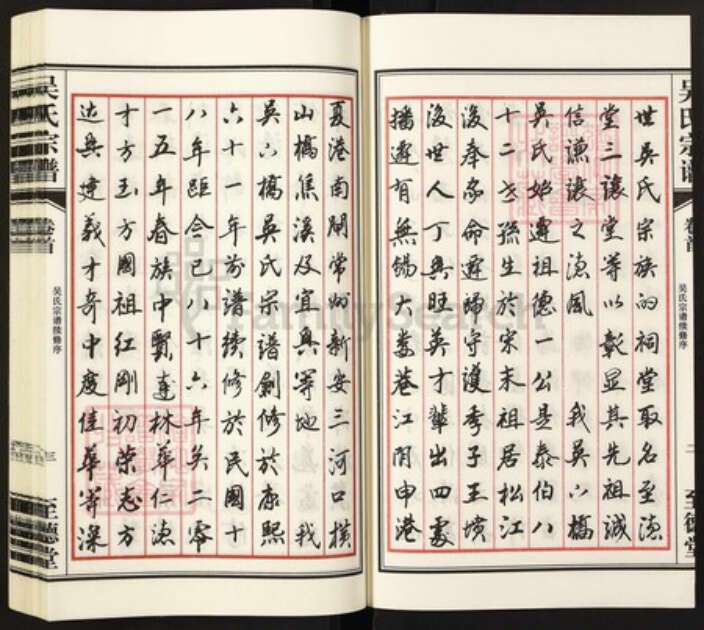 吴氏宗谱
卷首
吴氏宗谱续修序
二
至德堂
世吴氏宗族的祠堂取名至德
堂三讓堂等以彰显其先祖誠
信谦讓之德風　我吴六橋
吴氏始遷祖德一公是泰伯八
十二世孫生於宋末祖居松江
後奉命遷歸守護季子王墳
後世人丁興旺英才輩出四處
播遷有無锡大婁巷江阴申港
夏港南閘常州新安三河口横
山橋焦溪及宜興等地　我
吴六橋吴氏宗譜創修於康熙
六十一年前譜續修於民國十
八年距今已八十六年矣二零
一五年春族中賢達林華仁德
才方玉方國祖红剛初荣志方
达興建義才奇中度佳華等深
吴氏宗谱
卷首
吴氏宗谱续修序
三
至德堂
FamilySearch